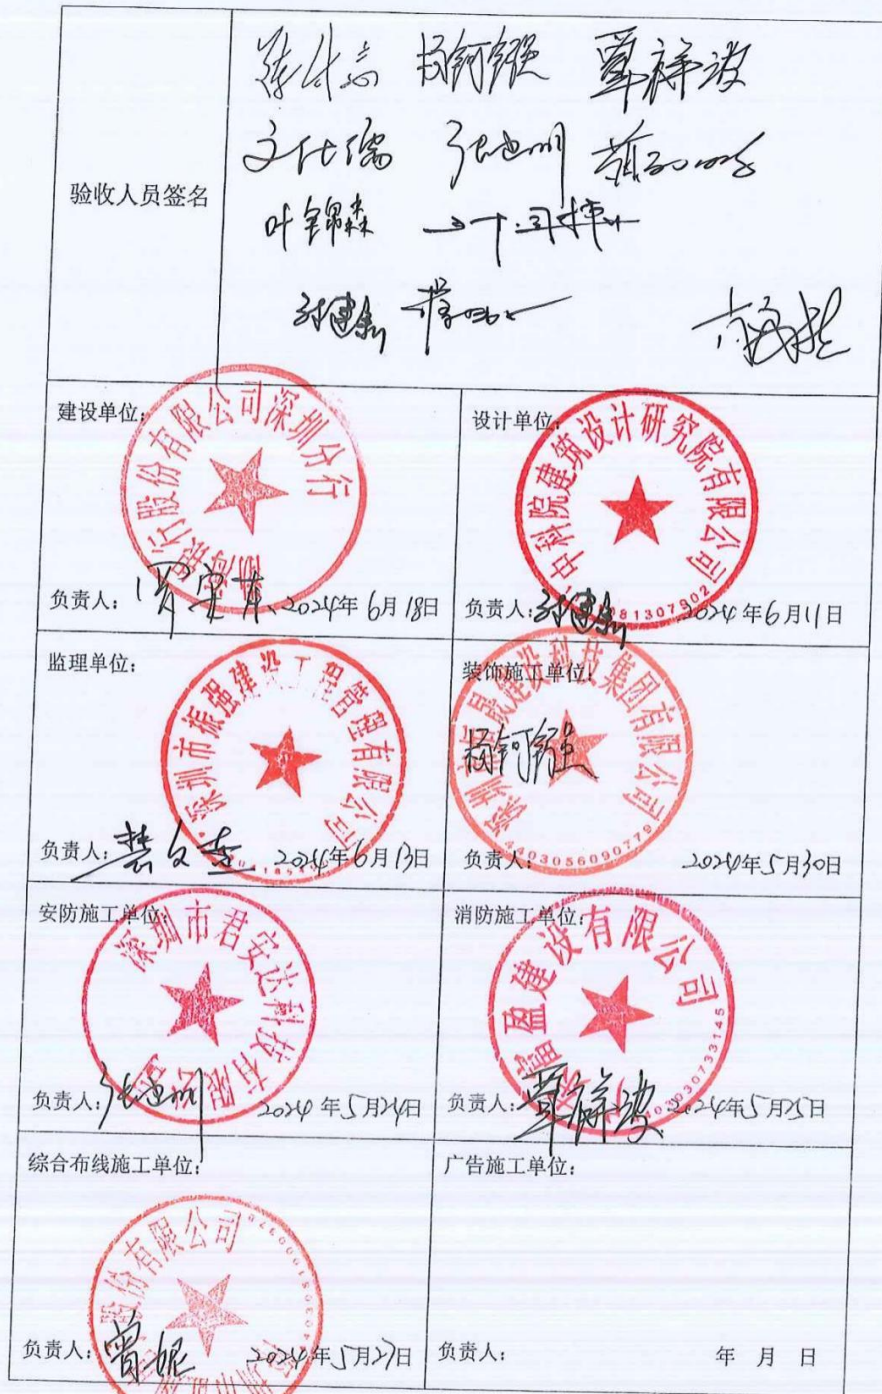 验收人员签名
杨钶镪 覃祥波
文仕儒 张迪明
叶锦森
建设单位：
渤海银行股份有限公司深圳分行
负责人： 2024年6月18日
设计单位：
中科院建筑设计研究院有限公司
81307902
负责人： 2024年6月11日
监理单位：
深圳市振强建设工程管理有限公司
负责人： 2024年6月13日
装饰施工单位：
建设科技集团有限公司
杨钶镪
4403056090779
负责人： 2024年5月30日
安防施工单位：
深圳市君安达科技有限公司
负责人：张迪明 2024年5月24日
消防施工单位：
富盈建设有限公司
4403030733145
负责人：覃祥波 2024年5月25日
综合布线施工单位：
股份有限公司
负责人：曾妮 2024年5月27日
广告施工单位：
负责人： 年 月 日